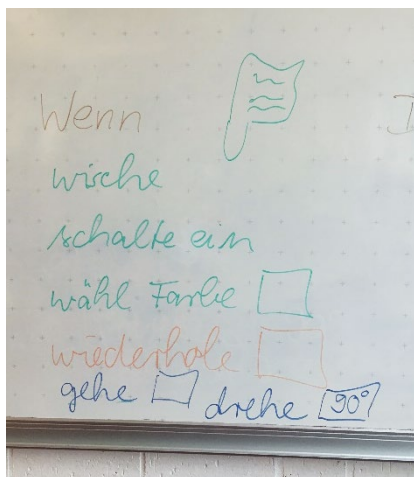 Wenn
wische
schalte ein
wähl Farbe
wiederhole
gehe drehe 90°